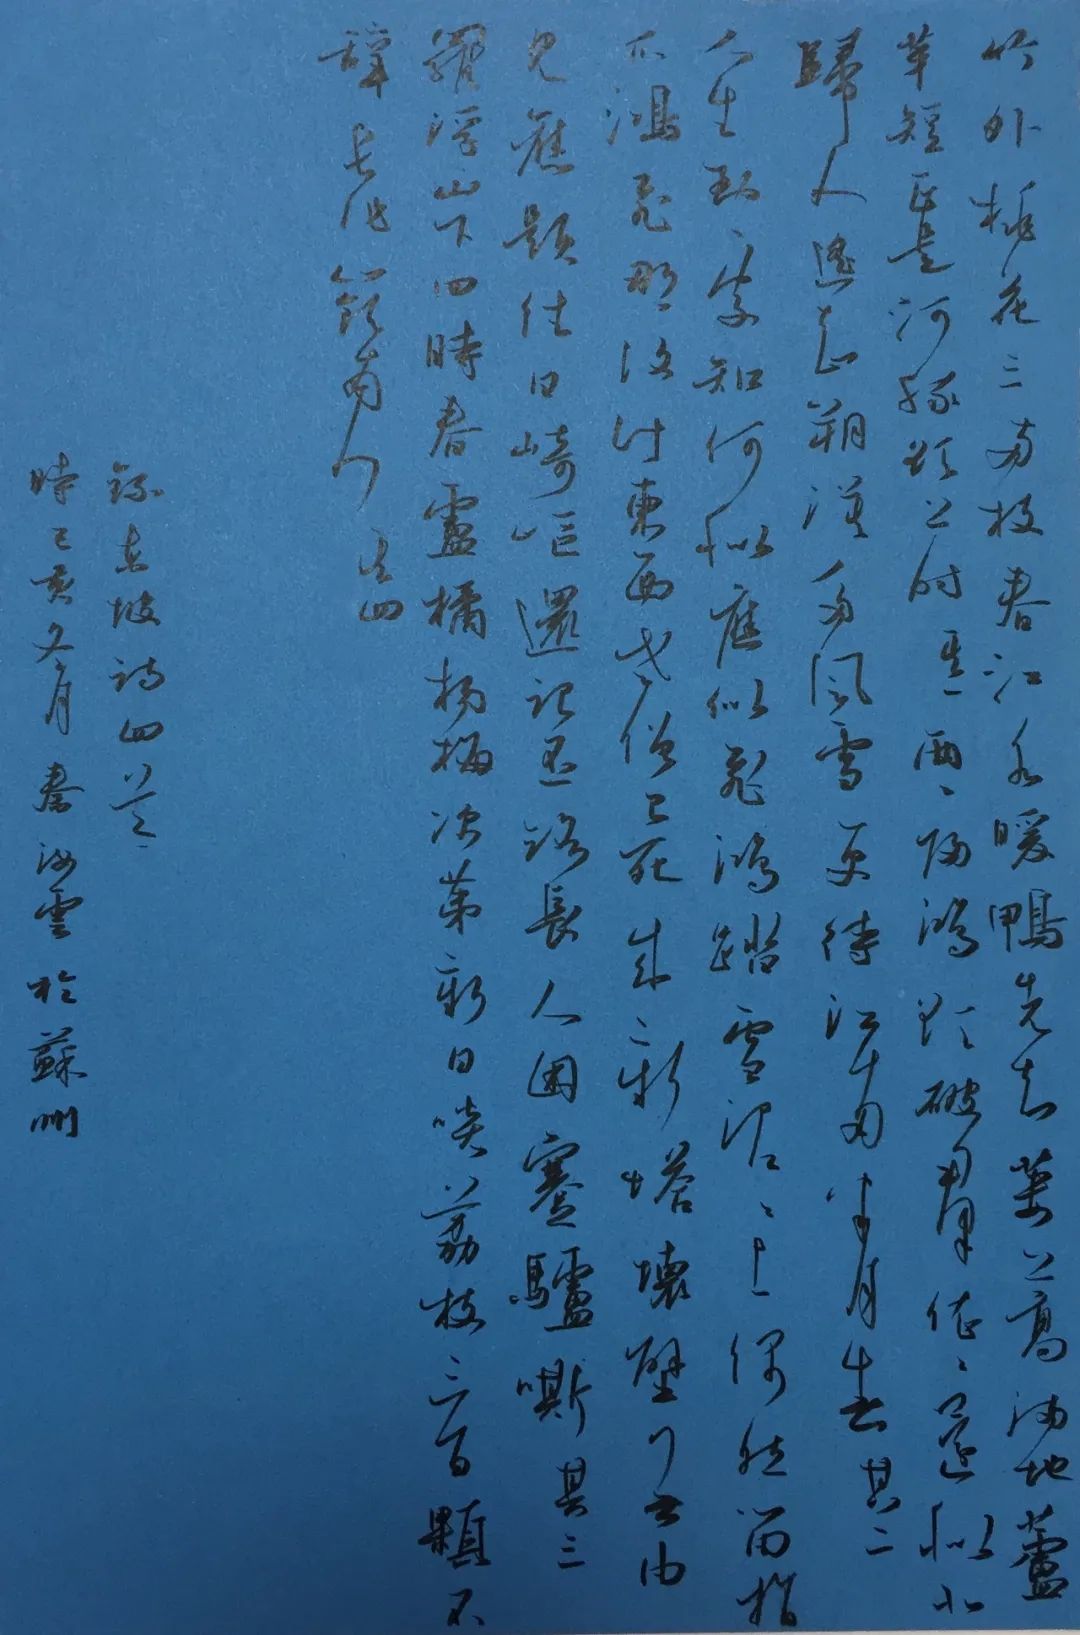 竹外桃花三兩枝春江水暖鴨先知蔞蒿滿地蘆
芽短正是河豚欲上時其一兩〻歸鴻欲破群依〻還似北
歸人遙知朔漠多風雪更待江南半月春其二
人生到處知何似應似飛鴻踏雪泥〻上偶然留指
爪鴻飛那復計東西老僧已死成新塔壞壁無由
見舊題往日崎嶇還記否路長人困蹇驢嘶其三
羅浮山下四時春盧橘楊梅次第新日啖荔枝三百顆不
辭長作嶺南人其四
錄東坡詩四首
時己亥冬月秦汝雲於蘇州